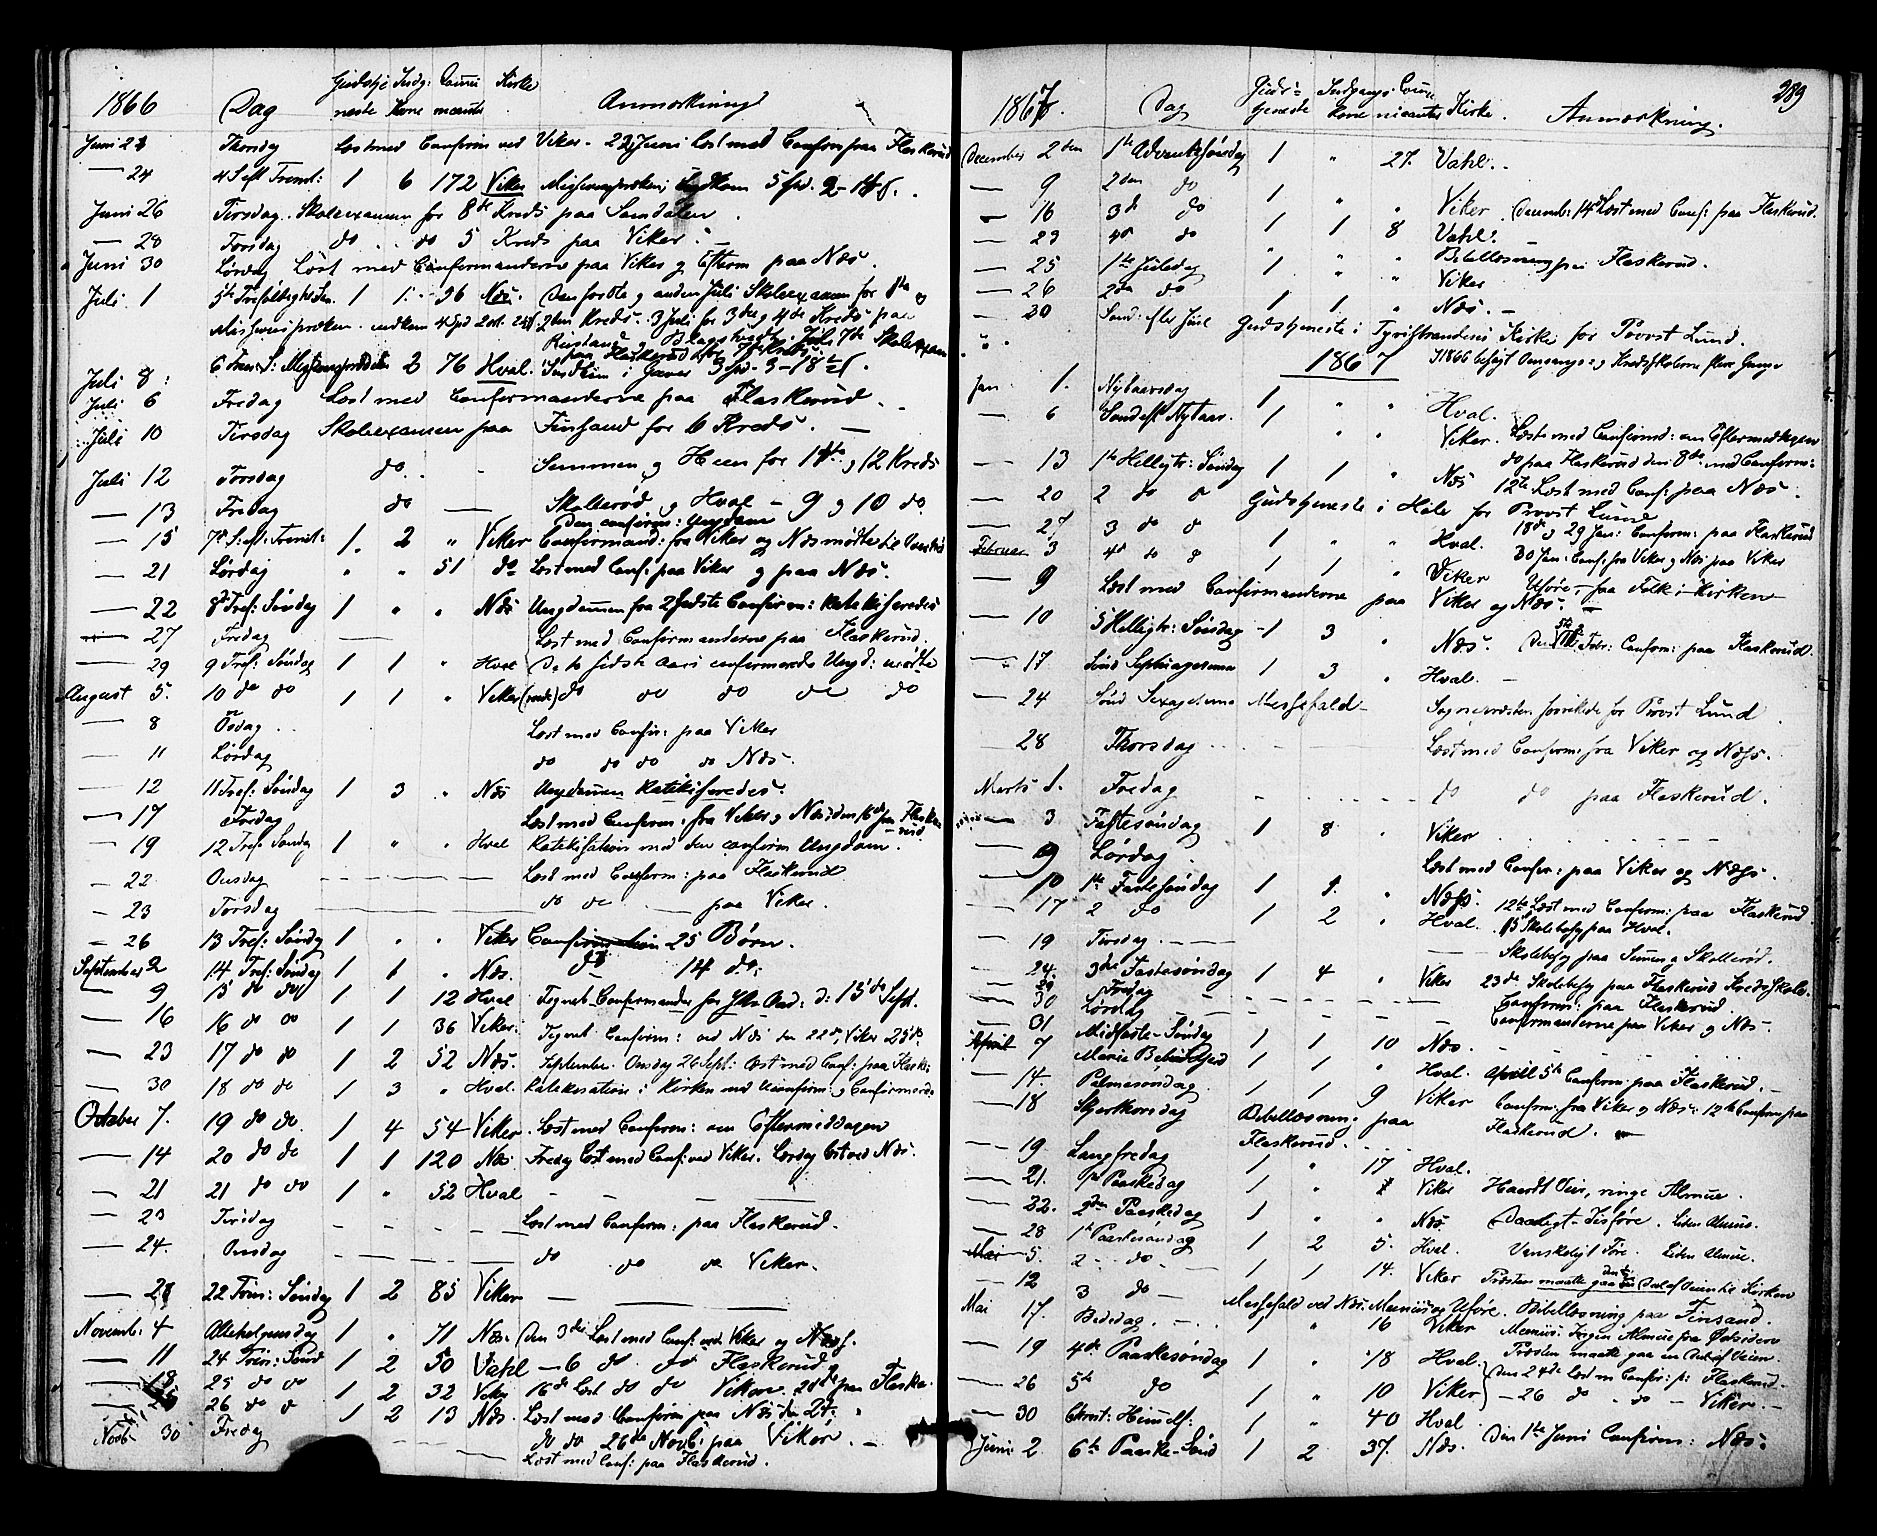 1866 Dag Gudstje neste Indg: Kone Communicanter Kirke Anmærkning
Juni 21 Thorsdag Læst med Confirm ved Viker. 22 Juni Læst med Confirm paa Flaskerud
— 24 4 S eft Treenit: 1 6 172 Viker 5 Spd.
Juni 26 Tirsdag. Skoleexamen for 8de Kreds paa Somdalen.
— 28 Torsdag do .. do 5 Kreds paa Viker.
Juni 30 Lørdag Læst med Confirmanderne paa Viker og Efterm paa Næs.
Juli 1 5te Trefoldigheds Søn. 1 1 96 Næs. Den første og anden Juli Skoleexamen for 1ste og
2den Kreds. 3 Juli for 3die og 4de Kreds paa
Juli 7de Skoleexam
paa Flaskerud for 7de Kreds
Juli 8 2 76 Hval.
Juli 6 Fredag Læst med Confirmanderne paa Flaskerud.
Juli 10 Tirsdag Skoleexamen paa Finsand for 6 Kreds. —
Juli 12 Torsdag do. Semmen og Heen for 11te og 12 Kreds
— 13 Fredag do — Skollerød og Hval — 9 og 10 do
Den confirm: Ungdom
— 15 7de S: eft: Treenit: 1. 2 " Viker Confirmand: fra Viker og Næs mødte
— 21 Lørdag " " 51 do Læst med Conf: paa Viker og paa Næs.
— 22 8de Tref: Søndag 1 " " Næs Ungdommen fra 2 sidste Confirm: katekiseredes
— 27 Fredag — Læst med Confirmanderne paa Flaskerud.
— 29 9 Tref: Søndag 1 1 " Hval De to sidste Aars confirmerede Ungd: mødte
August 5. 10 do do 1 1 " Viker do do do do do
— 8 Onsdag .. Læst med Confir: paa Viker
— 11 Lørdag do do do do Næs.
— 12 11 Tref: Søndag 1 3 " Næs Ungdommen katekiseredes.
— 17 Fredag Læst med Confirm: fra Viker og Næs, den 16de fra Flaske
rud
— 19 12 Tref: Søndag 1 " " Hval Katekisation med den confirm Ungdom.
— 22 Onsdag — Læst med Conform: paa Flaskerud
— 23 Torsdag — do do — paa Viker.
— 26 13 Tref: Søndag 1 . . Viker Confirmation 25 Børn.
September 2 14 Tref: Søndag 1 1 " Næs. do 14 do.
— 9 15 do do 1 1 12 Hval Tegnet Confirmander d: 15de Sept.
— 16 16 do do 1 1 36 Viker. Tegnet Confirm: ved Næs den 22de, Viker 25de
— 23 17 do do 1 2 52 Næs. September. Onsdag 26 Sept: Læst med Conf: paa Flaske:
— 30 18 do do 1 3 " Hval. Katekesation i Kirken med og Confirmerede
October 7. 19 do do. 1 4 54 Viker. Læst med Confirm: om Eftermiddagen
— 14 20 do do 1 1 120 Næs. Fredag Læst med Conf: ved Viker. Lørdag Læst ved Næs.
— 21 21 do do 1 " 52 Hval — — —
— 23 Tirsdag — — — Læst med Confirm: paa Flaskerud.
— 24. Onsdag — — do do do Viker.
— 28 22 Trin: Søndag 1 2 85 Viker — — —
Novemb: 4 Allehelgensdag 1 " 71 Næs. Den 3die Læst med Conf: ved Viker og Næss.
— 11 24 Trin: Sønd 1 2 50 Vahl — 6 do do Flaskerud
— 18 25 do do 1 2 32 Viker 16de Læst do do Viker. paa Flaske.
— 25 26 do d 1 2 13 Næs. Læst med Confirm paa Næs den
Novb. 30 Fredag do do 26de Novb: paa Viker. —
Læst med Conf: paa Flaskerud.
289
1867. Dag Guds= tjeneste Indgangs Kone Communicanter Kirke. Anmærkning.
December 2den 1ste Adventsøndag 1 " 27. Vahl.
— 9 2den do 1 " " Viker Decemb: 14de Læst med Conf: paa Flaskerud.
— 16 3de do 1 1 8 Vahl.
— 23 4de do " " " Bibellæsning paa Flaskerud.
— 25 1ste Juledag 1 " " Viker
— 26 2den do 1 1 " Næs. —
— 30 Sønd: efter Juul Gudstjeneste i Tyristrandens Kirke for Provst Lund.
1867 I 1866 besøgt Omgangs- og Kredsskolerne flere Gange
Jan. 1. Nytaarsdag 1 " " Hval.
— 6 Sønd eft Nytaar. 1 " " Viker. Læst med Confirmd: om Eftermiddagen
do paa Flaskerud den 8de med Confirm:
— 13 1ste Helligtr: Søndag 1 1 " Næs 12te Læst med Conf: paa Næs.
— 20 2 do d Gudstjeneste i Hole for Provst Lund
— 27 3 do d 1 " " Hval. 18de og 29 Jan: Confirm: paa Flaskerud
Februar 3 4de do d 1 1 " Viker 30 Jan: Conf: fra Viker og Næs paa Viker
— 9 Læst med Confirmanderne paa Viker og Næs. Uføre, faa Folk i Kirken
— 10 5 Helligtr: Søndag 1 3 " Næs. Febr: Confirm: paa Flaskerud.
— 17 Sønd Septuagesima 1 3 " Hval. —
— 24 Sønd Sexagesima Messefald — for Provst Lund
— 28 Thorsdag Læst med Confirm: fra Viker og Næss.
Marts 1. Fredag do do paa Flaskerud.
— 3 Fastesøndag 1 8 " Viker
— 9 Lørdag Læst med Confir: paa Viker og Næss.
— 10 1ste Fastesøndag 1 1. " Næss. 12te Læst med Confirm: paa Flaskerud
— 17 2 do 1 2 " Hval. 15 Skolebesøg paa Hval.
— 19 Tirsdag. — Skolebesøg paa Semmen og Skollerød.
— 24. 3die Fastesøndag 1 4 " Viker 23de Skolebesøg paa Flaskerud Kredsskole.
— 29 Fredag Confirm: paa Flaskerud.
— 30 Lørdag Confirmanderne paa Viker og Næs.
— 31 Midfaste-Søndag 1 1 10 Næs. — — —
April 7 Mariæ Bebudelse 1 1 " Hval. April 5te Confirm: paa Flaskerud. —
— 14. Palmesøndag 1 1 9 Viker Confirm: fra Viker og Næs: 12te Confirm paa
Flaskerud.
— 18 Skjærthorsdag Bibellæsning paa
Flaskerud.
— 19 Langfredag 1 " 17 Hval.
— 21. 1ste Paaskedag 1 " Viker Haardt Veir, ringe Almue.
— 22. 2den Paaskedag 1 " " Næs. Daarligt Føre. Liden Almue.
— 28 1ste Paaskesøndag 1 2 5. Hval. Vanskeligt Føre. Liden Almue.
Mai 5. 2 .. do 1 1 14. Viker Præsten maatte gaa en Deel af Veien til Kirken
— 12 3 do — Messefald ved Næs. Menniis og Uføre.
Mai 17. Bededag. 1 " 16 Viker Bibellæsning paa Finsand.
— 19 4de Paaskesøndag 1 " 18 Hval. Præsten maatte gaa en Deel af Veien.
— 26 5te do 1 " 10 Viker Den 24de Læst m Confir: p: Flaskerud.
— 26 do do — Viker. —
— 30 Christ: Himmelf: 1 " 40 Hval
Juni 2 6te Paaske-Sønd 1 2 37. Næs. Den 1ste Juni Confirm: Næs.